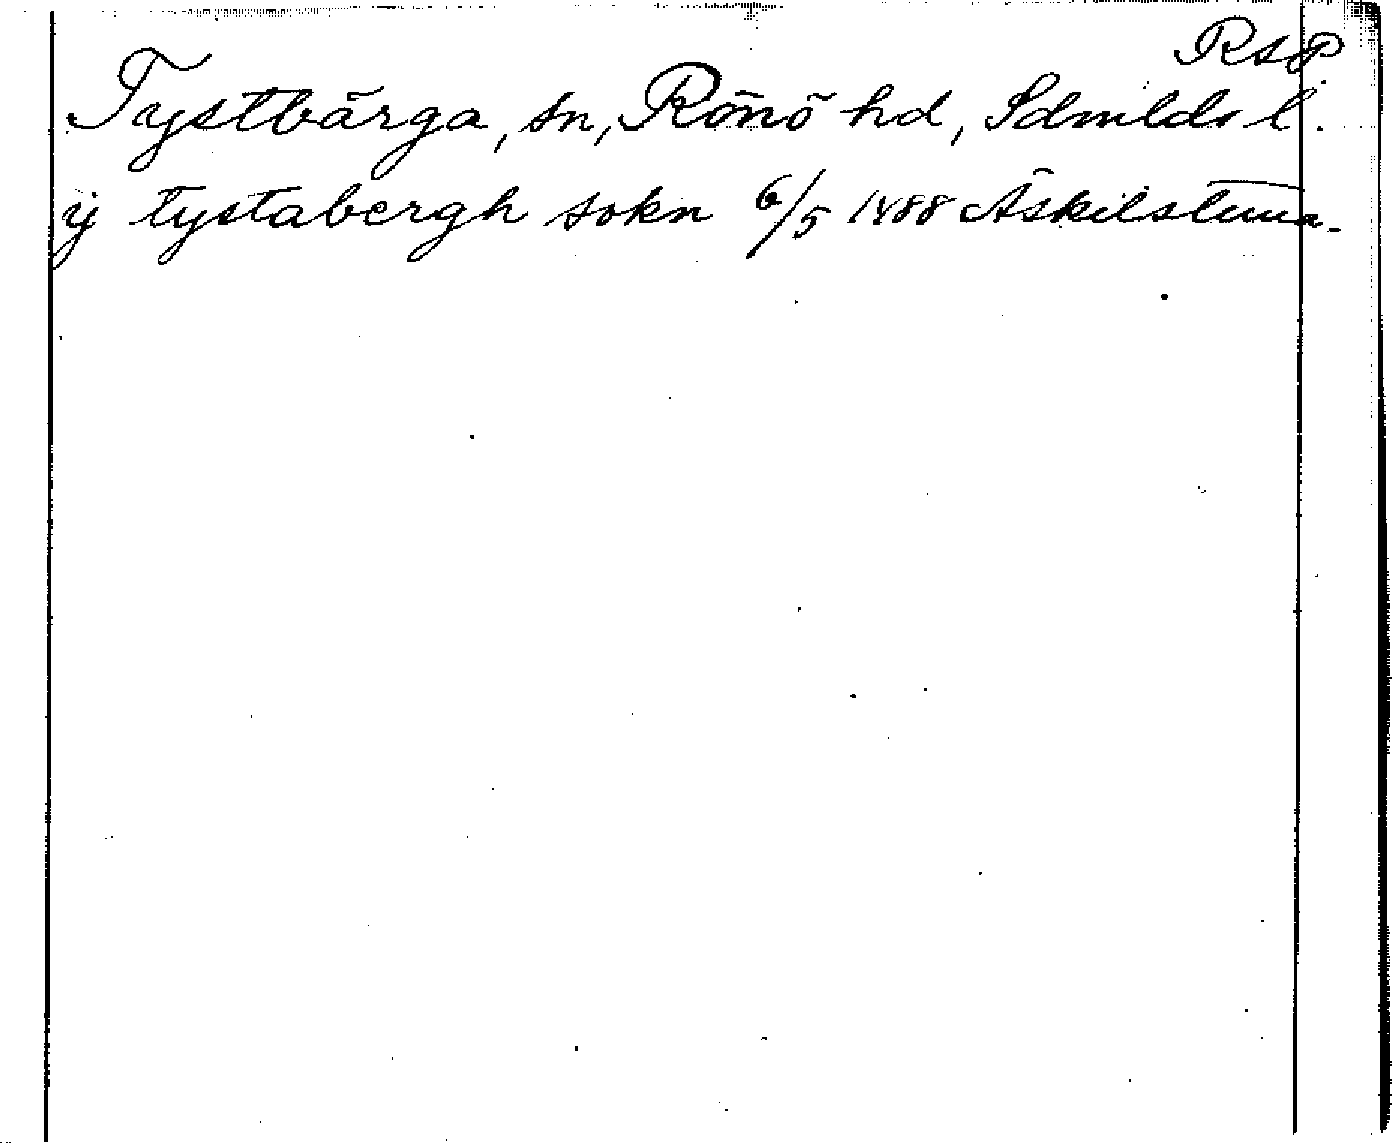 RAP
Tystbärga, sn, Rönö hd, Sdmlds l.
ÿ tystabergh sokn 6/5 1488 Äskilstuna.